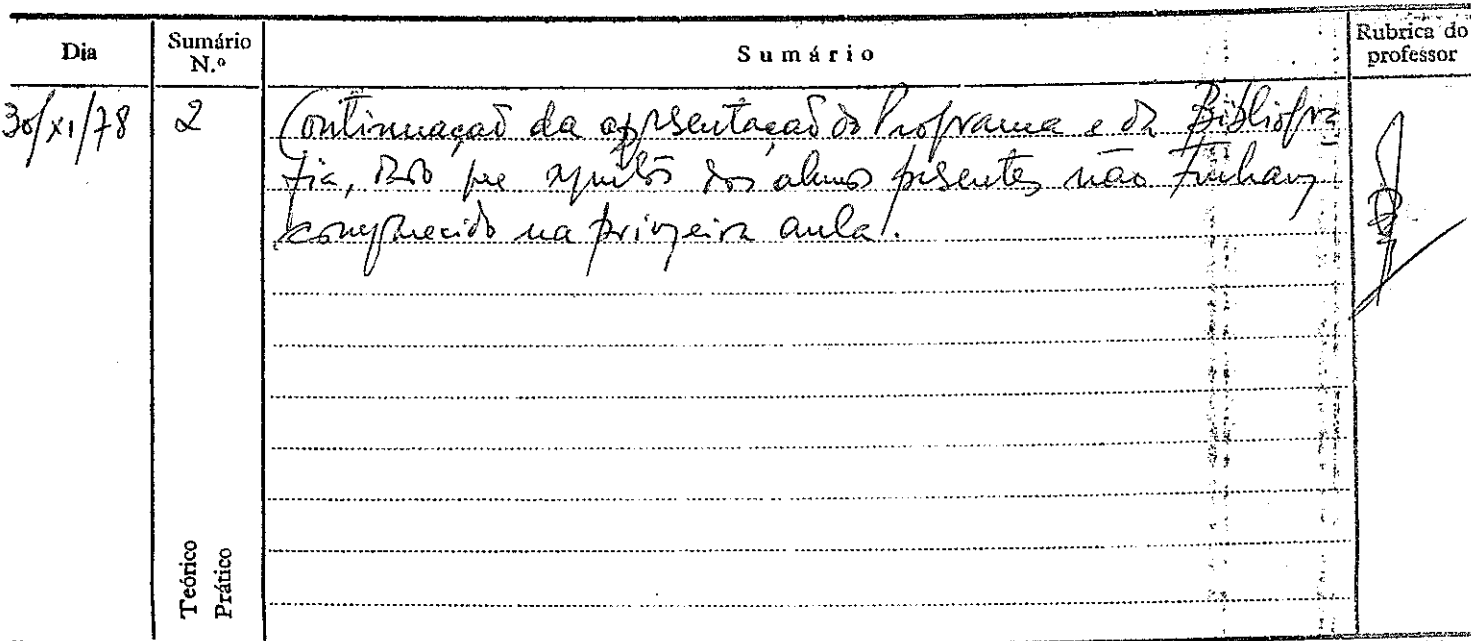 Dia
Sumário N.º
Sumário
Rubrica do professor
30/XI/78
2
Continuação da apresentação do Programa e da Bibliogra-
fia, que muitos dos alunos presentes não tinham
comparecido na primeira aula.
Teórico
Prático